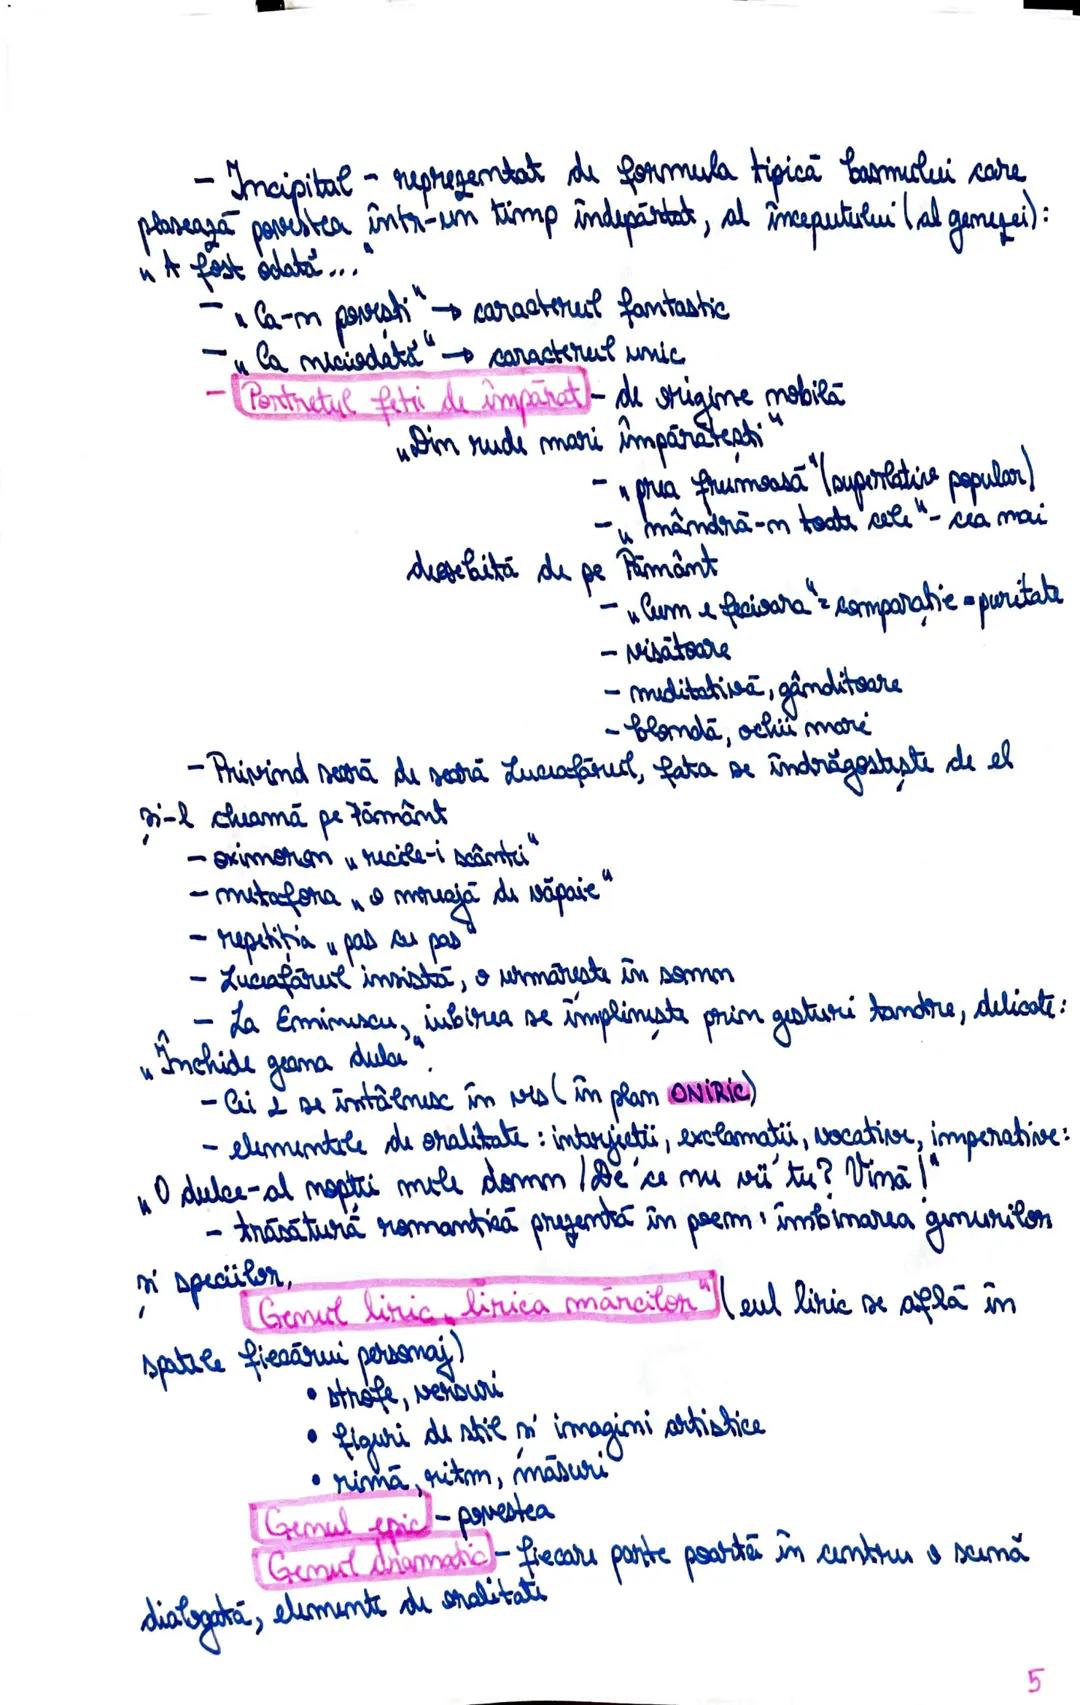 - Incipitul - reprezentat de formula tipică basmului care
plasează povestea într-un timp îndepărtat, al începutului (al genezei):
„A fost odată..."
- „Ca-n povești" → caracterul fantastic
- „Ca niciodată" → caracterul unic
- Portretul fetei de împărat - de origine nobilă
„Din rude mari împărătești"
- „prea frumoasă" (superlative popular)
- „mândră-n toate cele" - cea mai
deosebită de pe Pământ
- „Cum e fecioara" = comparație = puritate
- visătoare
- meditativă, gânditoare
- blondă, ochii mari
- Privind seară de seară Luceafărul, fata se îndrăgostește de el
și-l cheamă pe Pământ
- oximoron „recile-i scântei"
- metafora „o mreajă de văpaie"
- repetiția „pas cu pas"
- Luceafărul insistă, o urmărește în somn
- La Eminescu, iubirea se împlinește prin gesturi tandre, delicate:
„Închide geana dulce".
- Cei 2 se întâlnesc în vis (în plan ONIRIC)
- elementele de oralitate: interjecții, exclamații, vocative, imperative:
„O dulce-al nopții mele domn / De ce nu vii tu? Vină!"
- trăsătură romantică prezentă în poem: îmbinarea genurilor
și speciilor.
Genul liric „lirica măștilor" (eul liric se află în
spatele fiecărui personaj)
• strofe, versuri
• figuri de stil și imagini artistice
• rimă, ritm, măsuri
Genul epic - povestea
Genul dramatic - fiecare parte poartă în centru o scenă
dialogată, elemente de oralitate
5